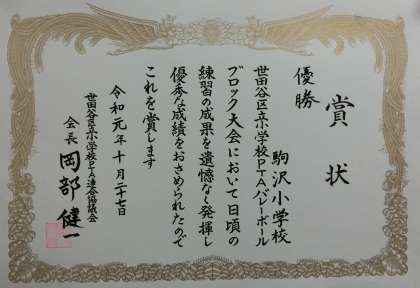 賞状
優勝
駒沢小学校
世田谷区立小学校PTAバレーボール
ブロック大会において日頃の
練習の成果を遺憾なく発揮し
優秀な成績をおさめられたので
これを賞します
令和元年十月二十七日
世田谷区立小学校PTA連合協議会
会長 岡部健一